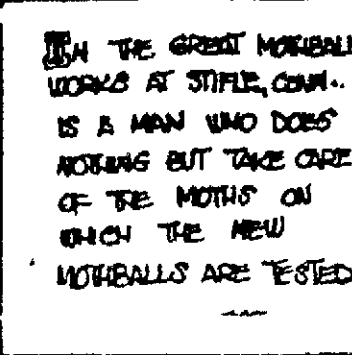 IN THE GREAT MOTHBALL
WORKS AT STIFLE, CONN..
IS A MAN WHO DOES
NOTHING BUT TAKE CARE
OF THE MOTHS ON
WHICH THE NEW
MOTHBALLS ARE TESTED